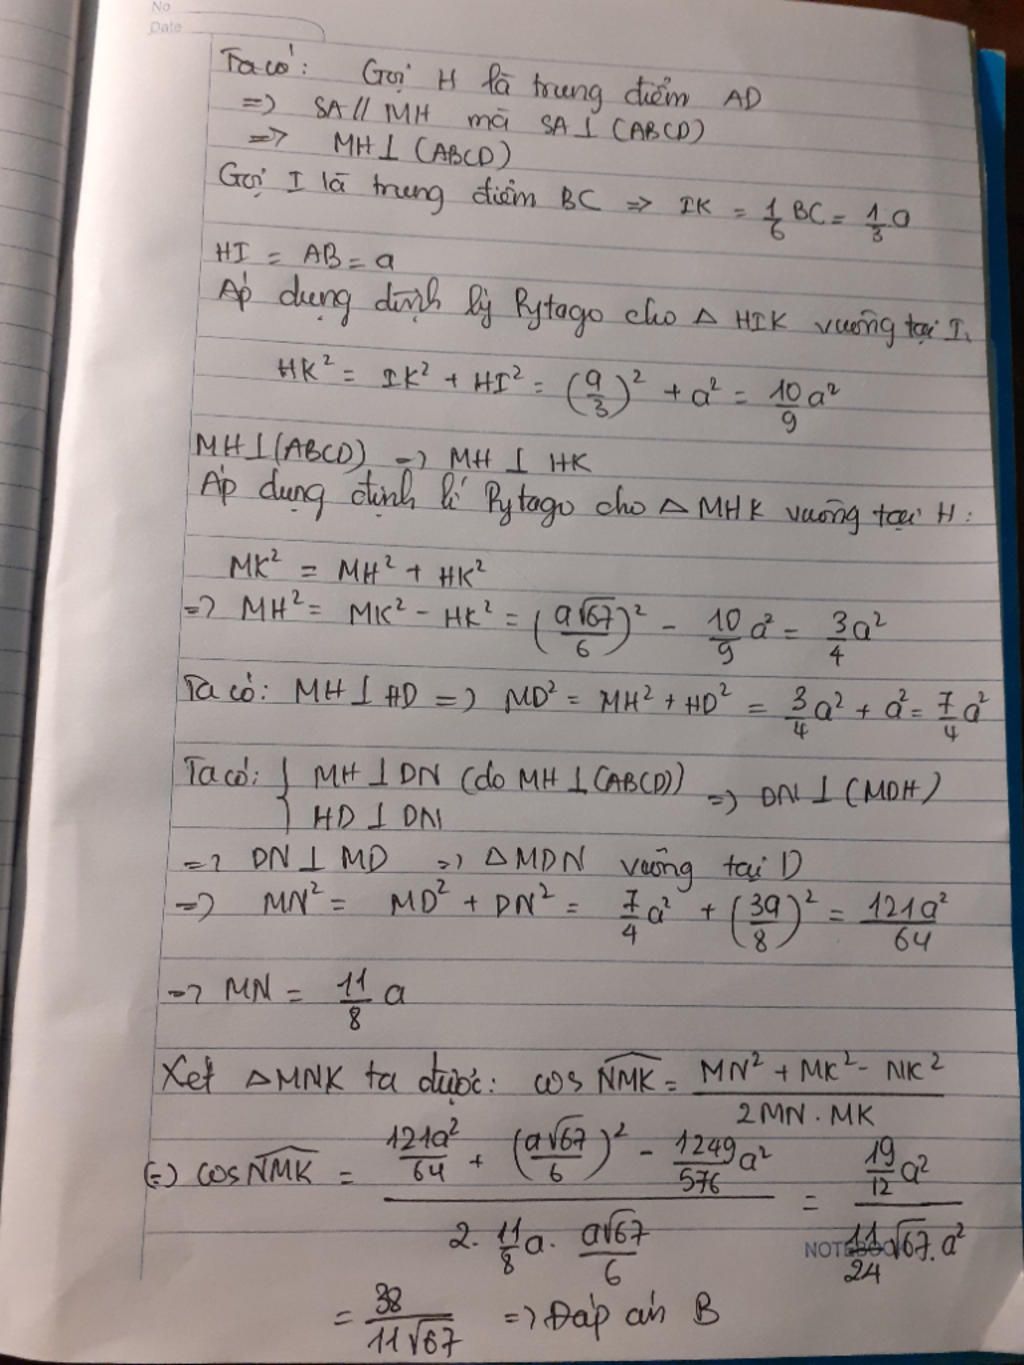 No
Date
Ta có: Gọi H là trung điểm AD
=> SA // MH mà SA ⊥ (ABCD)
=> MH ⊥ (ABCD)
Gọi I là trung điểm BC => IK = 1/6 BC = 1/3 a
HI = AB = a
Áp dụng định lý Pytago cho △ HIK vuông tại I.
HK² = IK² + HI² = (a/3)² + a² = 10/9 a²
MH ⊥ (ABCD) => MH ⊥ HK
Áp dụng định lí Pytago cho △ MHK vuông tại H:
MK² = MH² + HK²
=> MH² = MK² - HK² = (a√67/6)² - 10/9 a² = 3/4 a²
Ta có: MH ⊥ HD => MD² = MH² + HD² = 3/4 a² + a² = 7/4 a²
Ta có: { MH ⊥ DN (do MH ⊥ (ABCD)) => DN ⊥ (MDH)
HD ⊥ DN
=> DN ⊥ MD => △MDN vuông tại D
=> MN² = MD² + DN² = 7/4 a² + (3a/8)² = 121a²/64
=> MN = 11/8 a
Xét △MNK ta được: cos NMK = (MN² + MK² - NK²)/(2MN.MK)
(=) cos NMK = (121a²/64 + (a√67/6)² - 1249/576 a²)/(2. 11/8 a. a√67/6) = (19/12 a²)/(11/24 √67. a²)
NOTEBOOK
= 38/(11√67) => Đáp án B